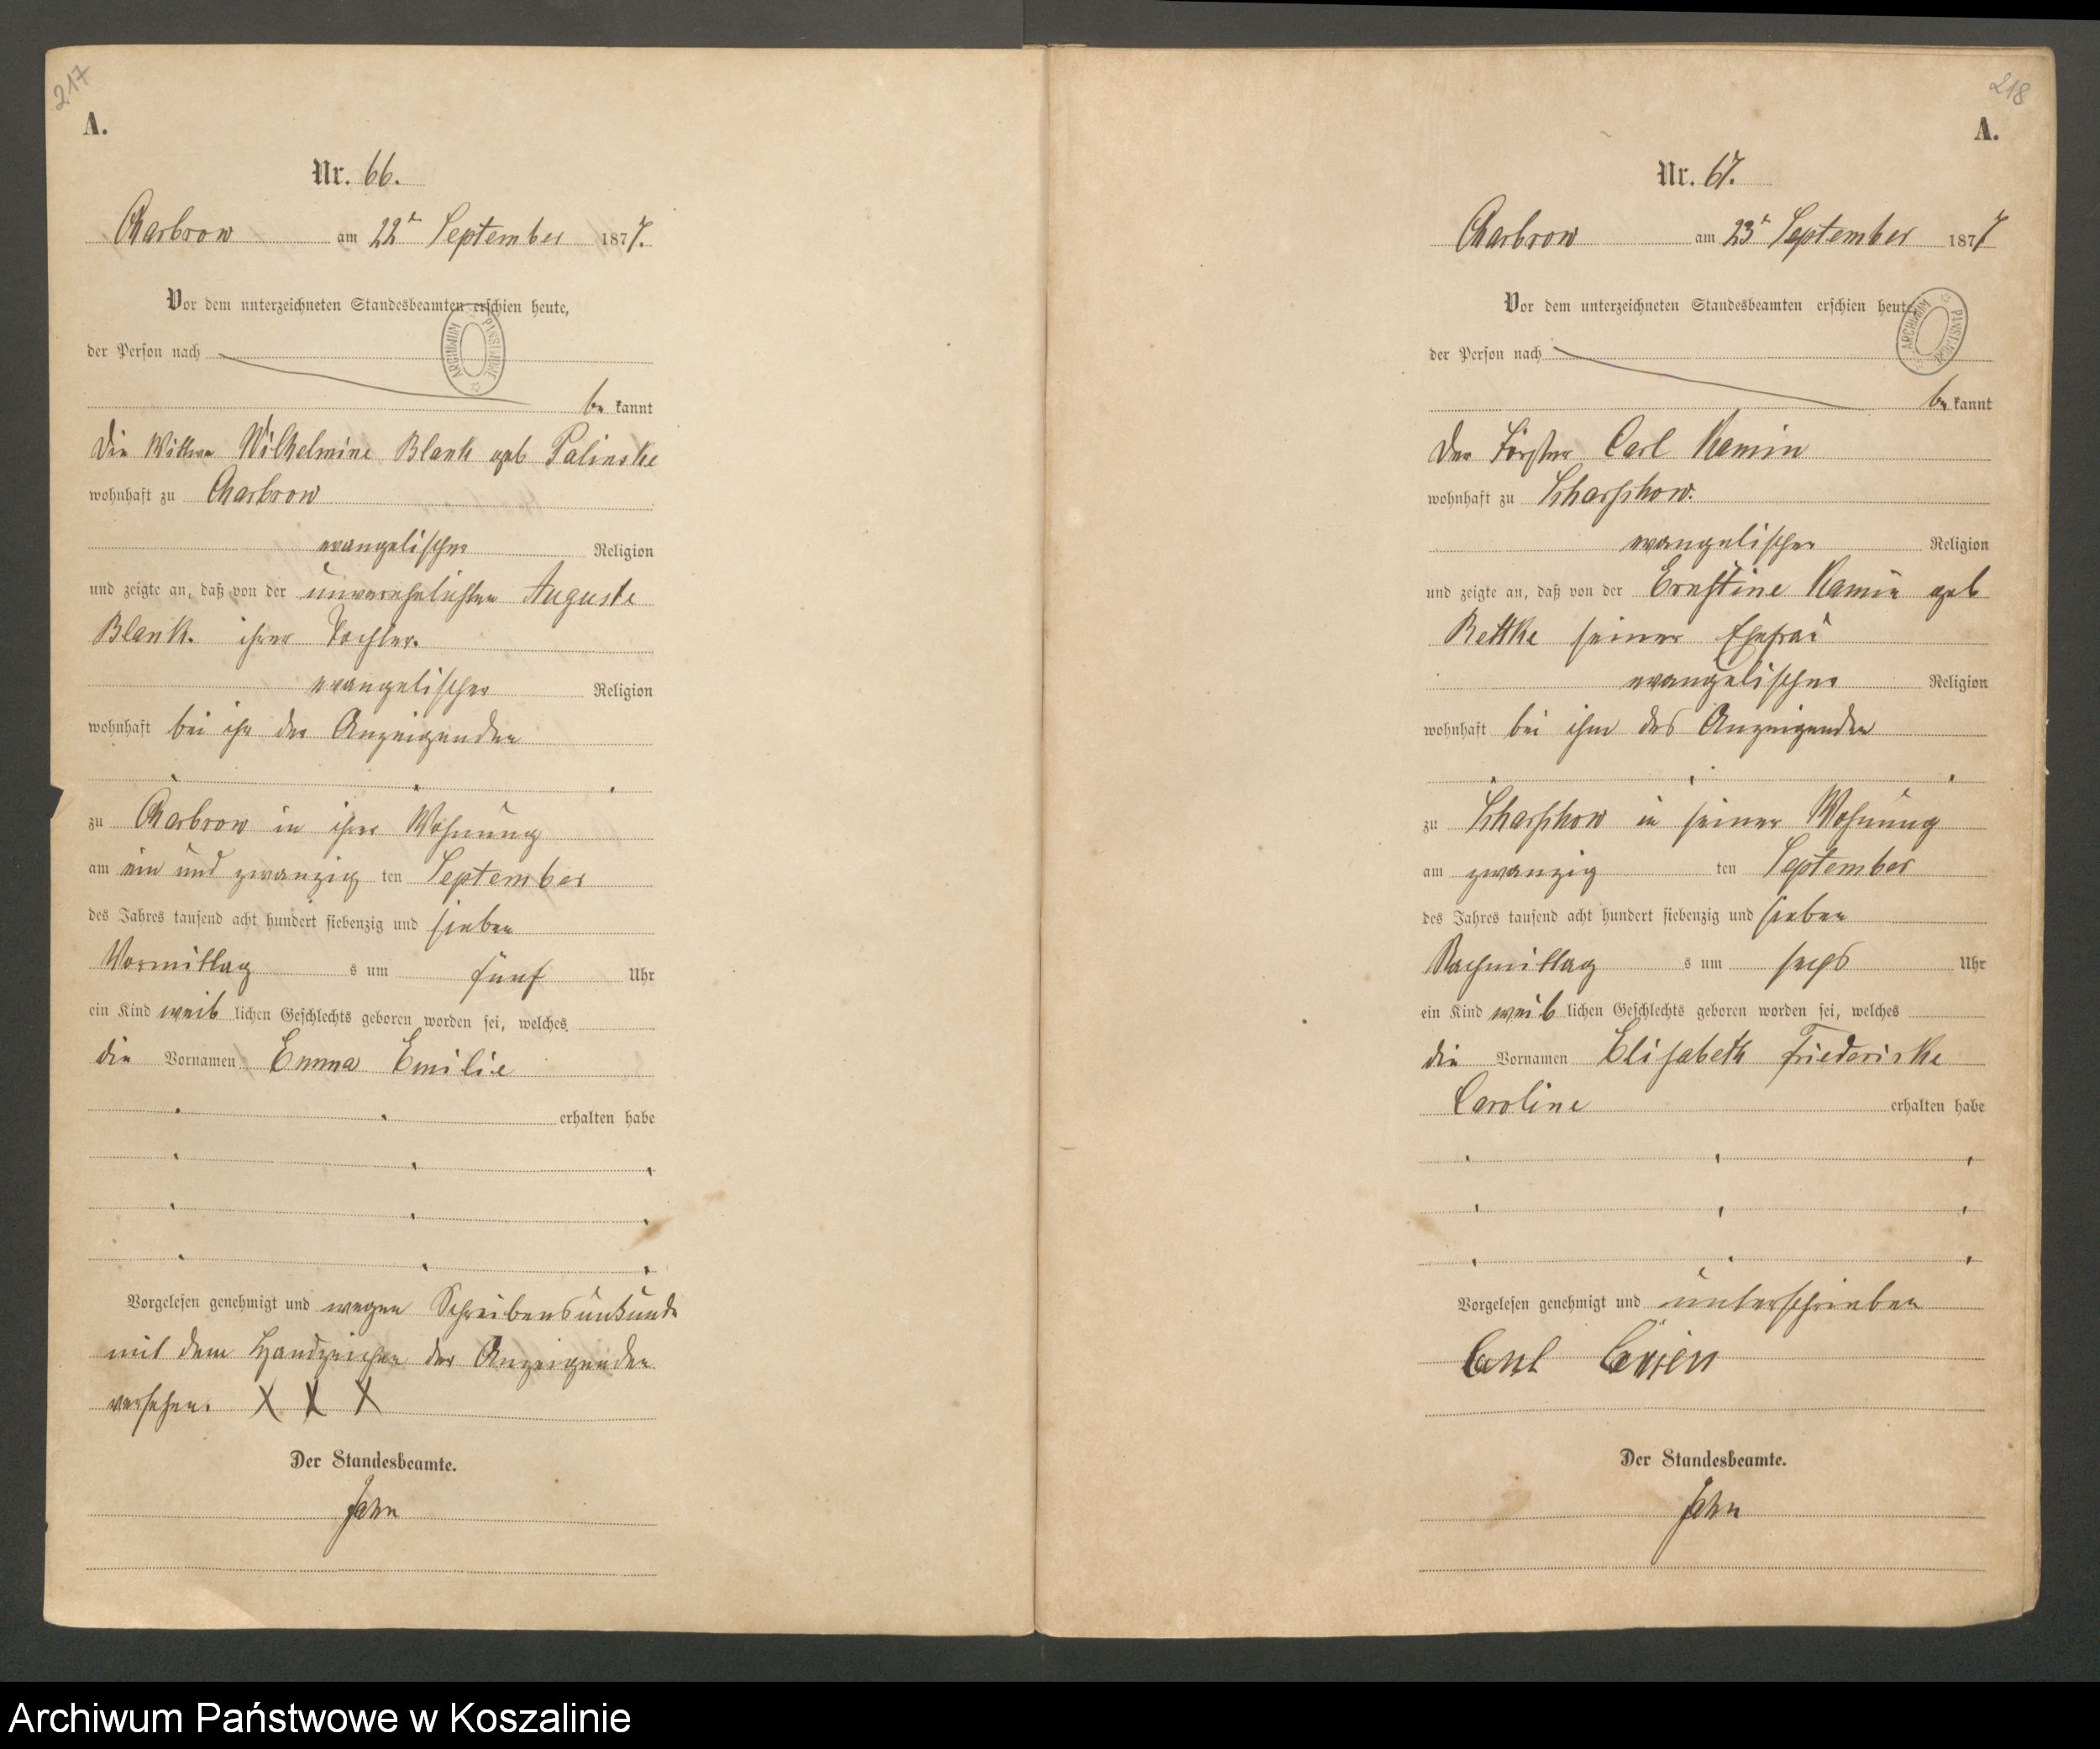 217
A.
Nr. 66.
Charbrow am 22t September 1877.
Vor dem unterzeichneten Standesbeamten erschien heute,
der Person nach
be kannt
die Wittwe Wilhelmine Blank geb Palinske
wohnhaft zu Charbrow
evangelischer Religion
und zeigte an, daß von der unverehelichten Auguste
Blank. ihrer Tochter.
evangelischer Religion
wohnhaft bei ihr der Anzeigenden
zu Charbrow in ihrer Wohnung
am ein und zwanzig ten September
des Jahres tausend acht hundert siebenzig und sieben
Vormittag s um fünf Uhr
ein Kind weib lichen Geschlechts geboren worden sei, welches
die Vornamen Emma Emilie
erhalten habe
Vorgelesen genehmigt und wegen Schreibensunkunde
mit dem Handzeichen der Anzeigenden
versehen. X X X
Der Standesbeamte.
Jahn
ARCHIWUM PAŃSTWOWE
218
A.
Nr. 67.
Charbrow am 23t September 1877
Vor dem unterzeichneten Standesbeamten erschien heute,
der Person nach
be kannt
der Förster Carl Kamin
wohnhaft zu
evangelischer Religion
und zeigte an, daß von der Ernstine Kamin geb
Bettke seiner Ehefrau
evangelischer Religion
wohnhaft bei ihm des Anzeigenden
zu in seiner Wohnung
am zwanzig ten September
des Jahres tausend acht hundert siebenzig und sieben
Nachmittag s um sechs Uhr
ein Kind weib lichen Geschlechts geboren worden sei, welches
die Vornamen Elisabeth Friederiske
Caroline erhalten habe
Vorgelesen genehmigt und unterschrieben
Carl
Der Standesbeamte.
Jahn
ARCHIWUM PAŃSTWOWE
Archiwum Państwowe w Koszalinie